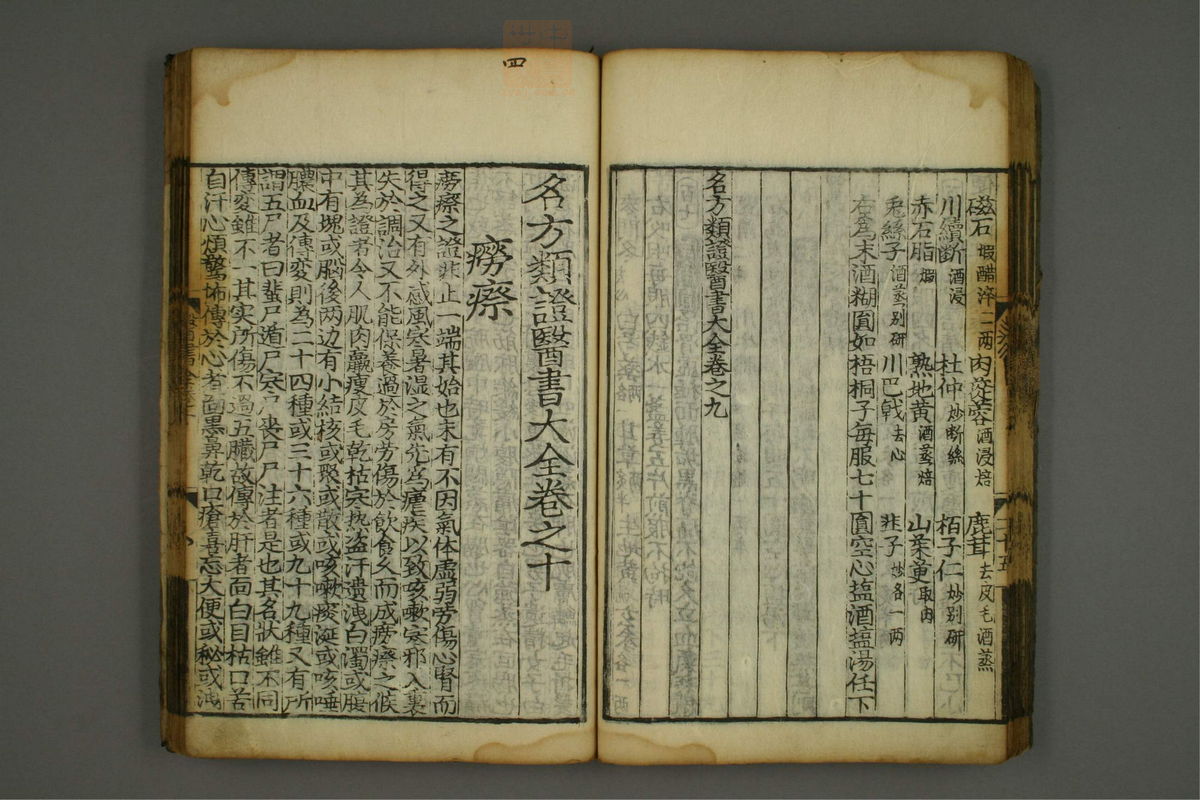 磁石煆醋淬二兩 肉蓯蓉酒浸焙 鹿茸去皮毛酒蒸
川續斷酒浸 杜仲炒斷絲 栢子仁炒別研
赤石脂煆 熟地黃酒蒸焙 山茱萸取肉
兎絲子酒蒸別研 川巴戟去心 韭子炒各一兩
右爲末酒糊圓如梧桐子每服七十圓空心塩酒塩湯任下
名方類證醫書大全卷之九
四
名方類證醫書大全卷之十
癆瘵
癆瘵之證非止一端其始也未有不因氣体虛弱労傷心腎而
得之又有外感風寒暑湿之氣先爲瘧疾以致咳嗽寒邪入裏
失於調治又不能保養過於房労傷於飲食久而成癆瘵之候
其為證者令人肌肉羸瘦皮毛乾枯寒热盗汗遺洩白濁或腹
中有塊或腦後两边有小結核或聚或散或咳嗽痰涎或咳唾
膿血及傳变則為二十四種或三十六種或九十九種又有所
謂五尸者曰蜚尸遁尸寒尸喪尸尸注者是也其名狀雖不同
傳变雖不一其实所傷不過五臟故傳於肝者面白目枯口苦
自汗心煩驚怖傳於心者面黒鼻乾口瘡喜忘大便或秘或洩